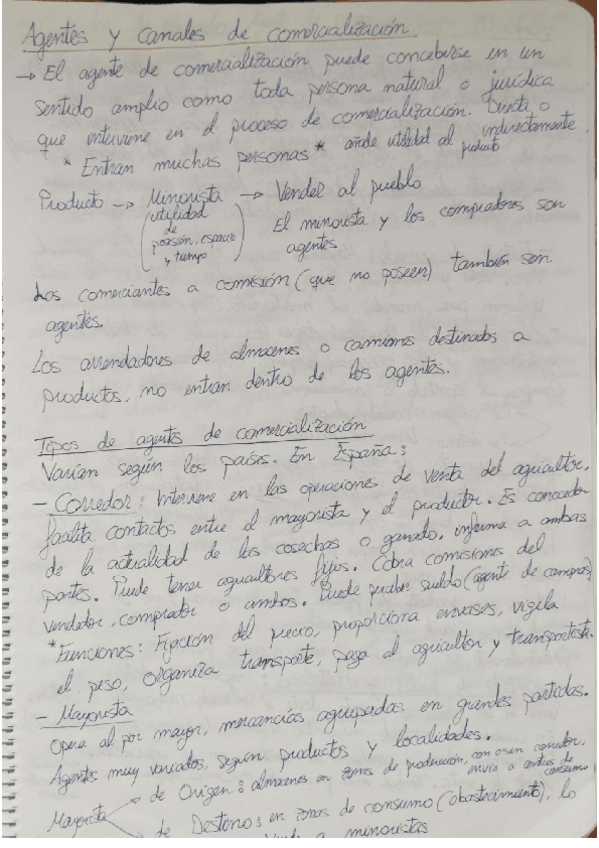 Agentes y canales de comercialización
→ El agente de comercialización puede concebirse en un
sentido amplio como toda persona natural o jurídica
que interviene en el proceso de comercialización. Directa o
indirectamente
* Entran muchas personas * añade utilidad al producto
Producto → Minorista → Vender al pueblo
(utilidad de posesión, espacio y tiempo)
El minorista y los compradores son
agentes
Los comerciantes a comisión (que no poseen) también son
agentes.
Los arrendadores de almacenes o camiones destinados a
productos, no entran dentro de los agentes.
Tipos de agentes de comercialización
Varían según los países. En España:
- Corredor: Interviene en las operaciones de venta del agricultor,
facilita contactos entre el mayorista y el productor. Es conocedor
de la actualidad de las cosechas o ganado, informa a ambas
partes. Puede tener agricultores fijos. Cobra comisiones del
vendedor, comprador o ambos. Puede recibir sueldo (agente de compras)
*Funciones: Fijación del precio, proporciona envases, vigila
el peso, organiza transporte, paga al agricultor y transportista.
- Mayorista
Opera al por mayor, mercancías agrupadas en grandes partidas.
Agentes muy variados, según productos y localidades.
Mayorista
de Origen: almacenes en zonas de producción, con o sin corredor,
envía a centros de consumo
de Destino: en zonas de consumo (abastecimiento), lo
a minoristas